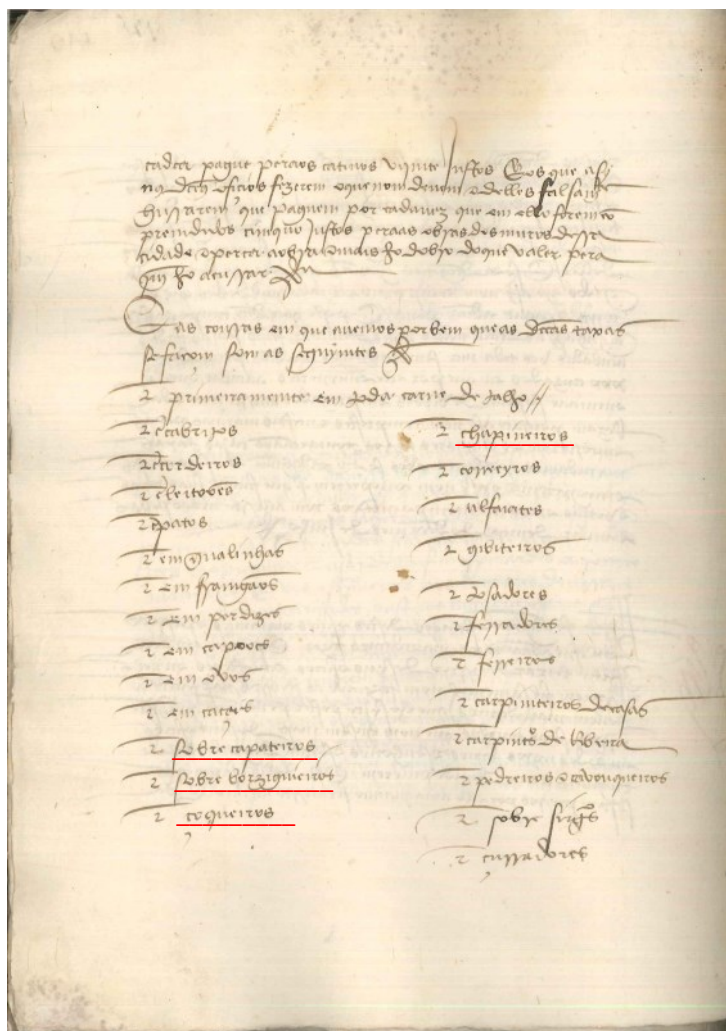 cadea pague peraos cativos vijnte Justos Eos que asy
nos dctos oficios fezerem oque nom devem e delles falsamte
husarem que paguem por cadavez que em ello forem co
prendidos cimquo Justos peraas obras dos muros desta
cidade e perca aobra e mais ho dobro do que valer pera
quem ho acusar
E as coussas em que avemos por bem que as dctas taxas
se façom som as seguimtes
primeiramente em toda carne de talho //
E cabritos
E cordeiros
E leitoões
E patos
E em gualinhas
E em framgaõs
E em perdizes
E em capoões
E em ovos
E em caças
E sobre çapateiros
E sobre borzeguieiros
E çoqueiros
E chapineiros
E correeyros
E alfaiates
E gibiteiros
E tosadores
E ferradores
E ferreiros
E carpinteiros de casas
E carpintros de Ribeira
E pedreiros e cavouqueiros
E sobre
E çurradores